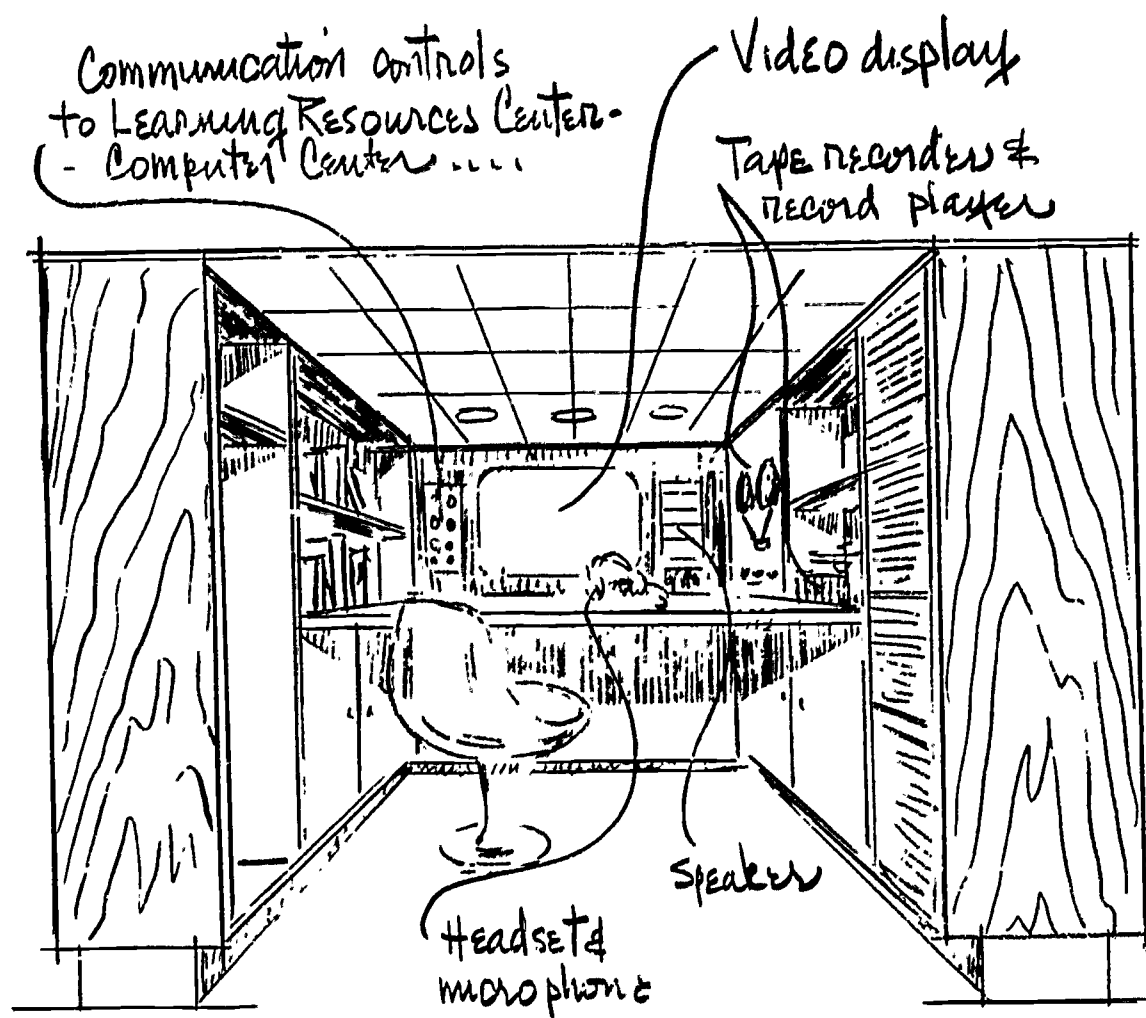 Communication controls
to Learning Resources Center-
- Computer Center ....
Video display
Tape recorder &
record player
Speaker
Headset &
microphone